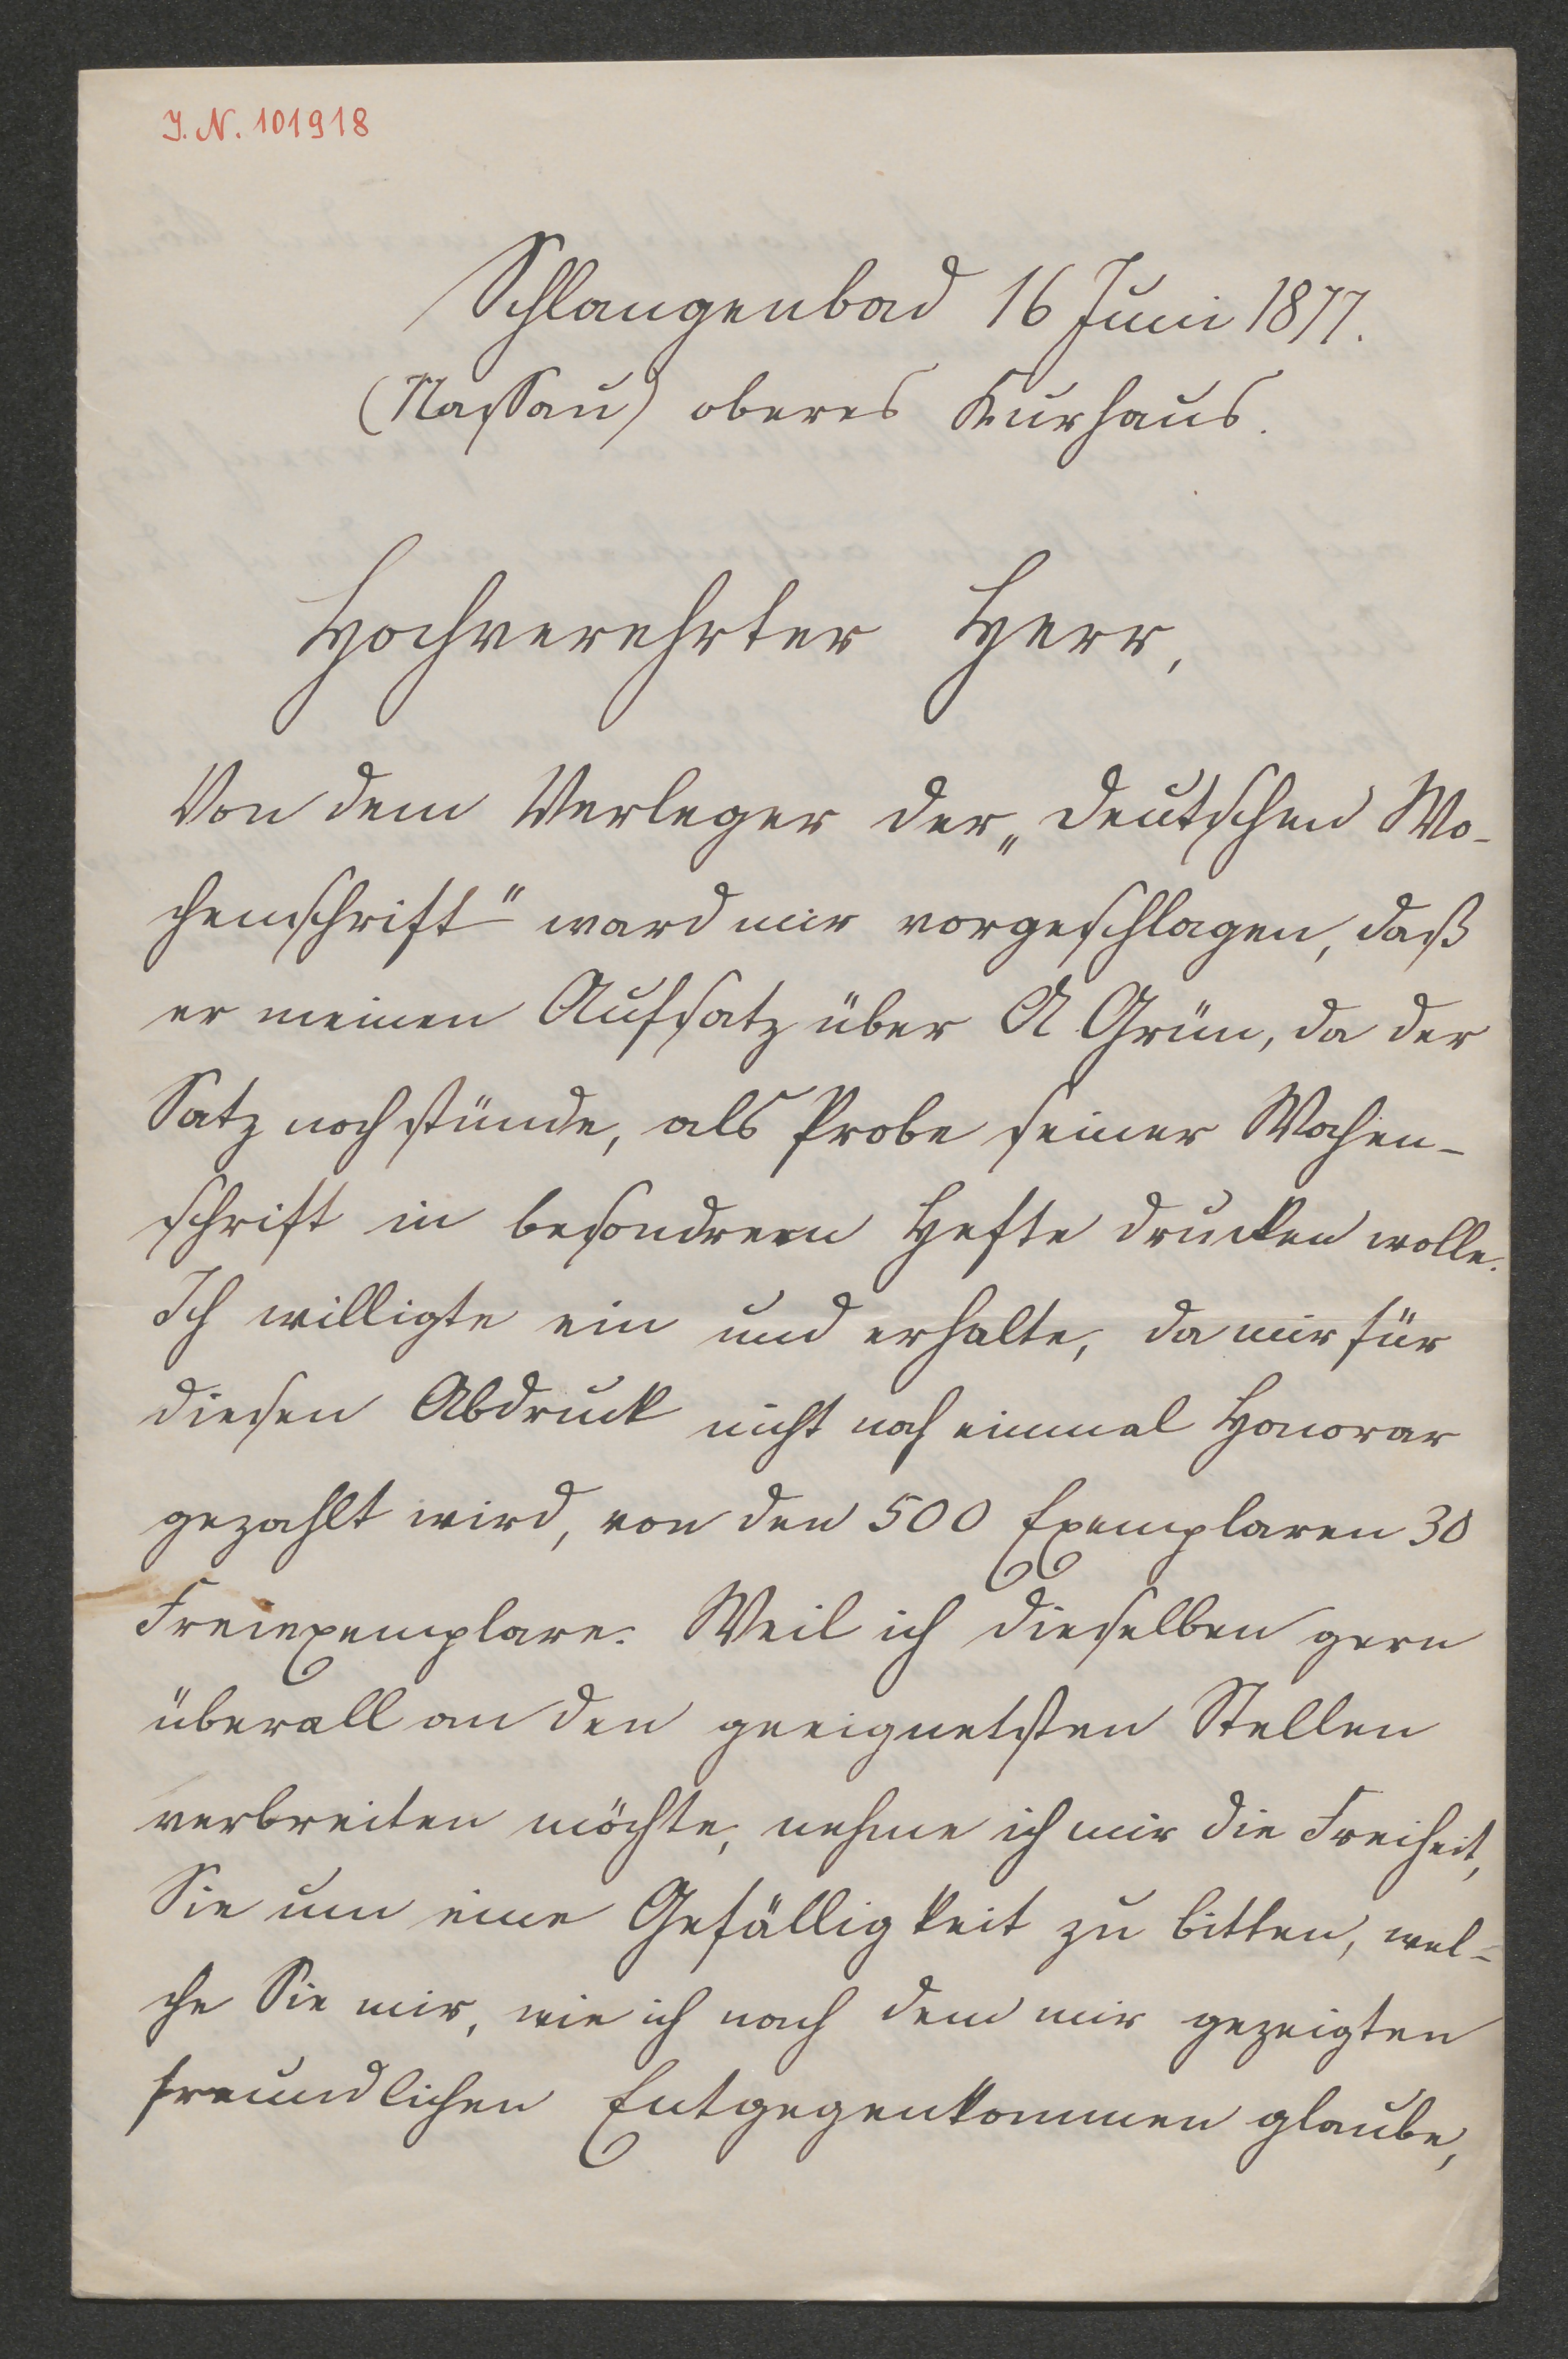 I. N. 101918
Schlangenbad 16 Juni 1877.
(Nassau) oberes Kurhaus.
Hochverehrter Herr,
Von dem Verleger der „Deutschen Wo-
chenschrift“ ward mir vorgeschlagen, daß
er meinen Aufsatz über A Grün, da der
Satz noch stünde, als Probe seiner Wochen-
schrift in besondrem Hefte drucken wolle.
Ich willigte ein und erhalte, da mir für
diesen Abdruck nicht noch einmal Honorar
gezahlt wird, von den 500 Exemplaren 30
Freiexemplare. Weil ich dieselben gern
überall an den geeignetsten Stellen
verbreiten möchte, nehme ich mir die Freiheit,
Sie um eine Gefälligkeit zu bitten, wel-
che Sie mir, wie ich nach dem mir gezeigten
freundlichen Entgegenkommen glaube,